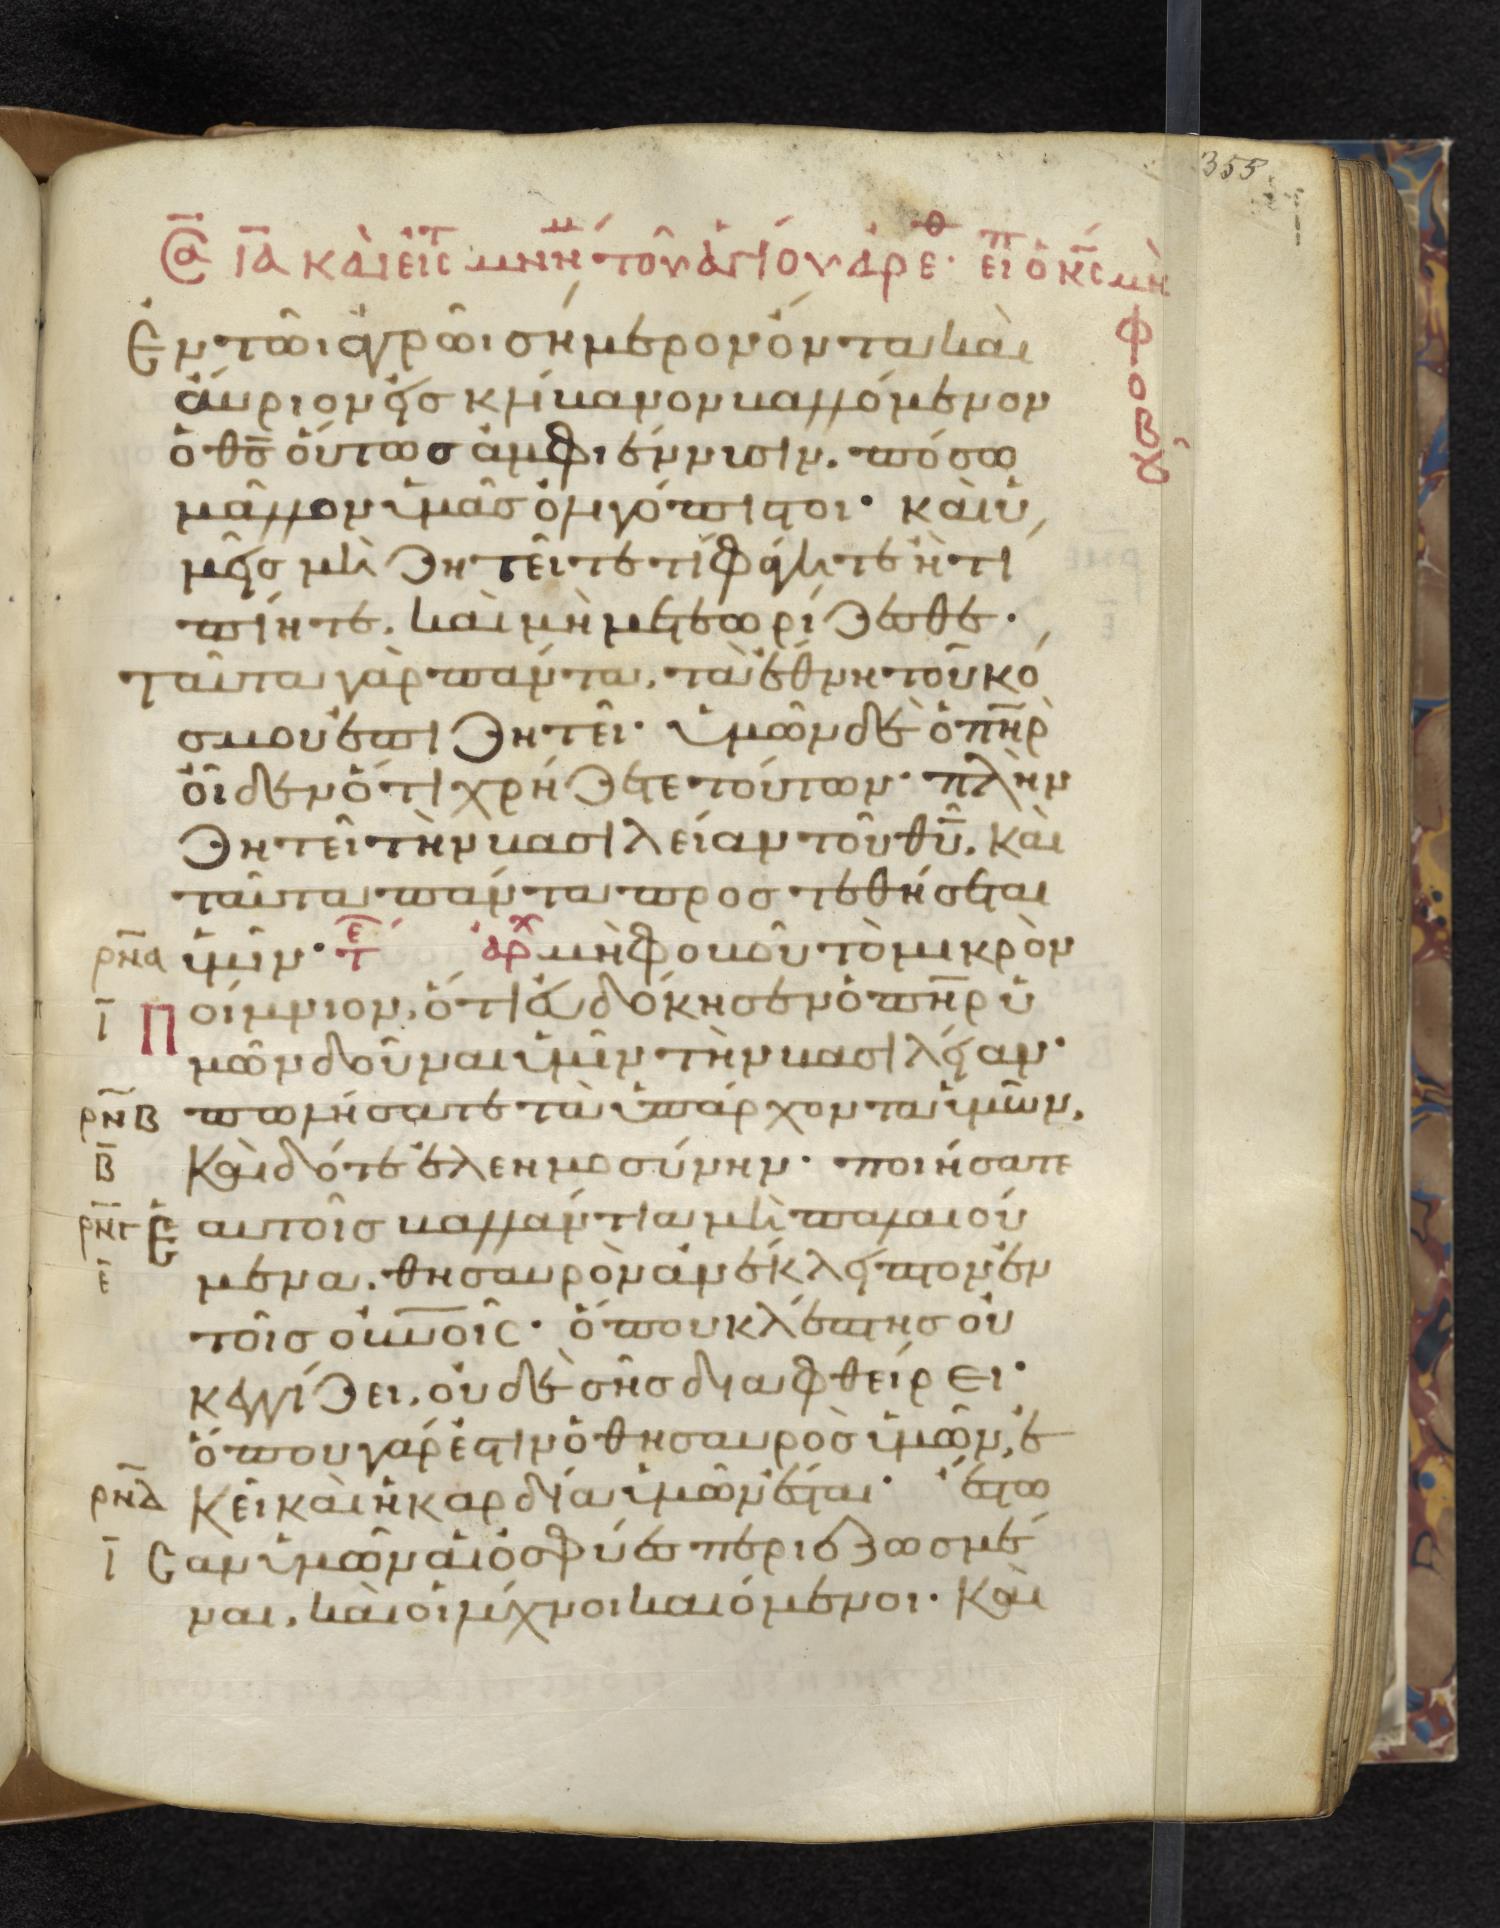 355
Σα ΙΑ καὶ εἰς μνημ τοῦ ἁγίου ἀρεθ· εἶπ ὁ κς μὴ
φοβοῦ
Ἐν τῶι ἀγρῶι σήμερον ὄντα καὶ
αὔριον εἰς κλίβανον βαλλόμενον
ὁ θς οὕτως ἀμφιέννυσιν. πόσω
μᾶλλον ὑμᾶς ὀλιγόπιστοι· καὶ ὑ
μεῖς μὴ ζητεῖτε τί φάγητε ἢ τί
πίητε. καὶ μὴ μετεωρίζεσθε·
ταῦτα γὰρ πάντα. τὰ ἔθνη τοῦ κό
σμου ἐπιζητεῖ· ὑμῶν δὲ ὁ πηρ
οἶδεν ὅτι χρήζετε τούτων· πλὴν
ζητεῖτὴν βασιλείαν τοῦ θυ. καὶ
ταῦτα πάντα προστεθήσεται
ρνα ὑμῖν· τε αρχ μὴ φοβοῦ τὸ μικρὸν
ι Ποίμνιον, ὅτι εὐδόκησεν ὁ πηρ ὑ
μῶν δοῦναι ὑμῖν τὴν βασιλείαν·
ρνβ πωλήσατε τὰ ὑπάρχοντα ὑμῶν.
β καὶ δότε ἐλεημοσύνην· ποιήσατε
ρνγ Ἑαυτοῖς βαλλάντια μὴ παλαιού
ε μενα. θησαυρὸν ἀνέκλειπτον ἐν
τοῖς οὐνοῖς· ὅπου κλέπτης οὐ
κ ἐγγίζει. οὐδὲ σὴς διαφθείρει·
ὅπου γάρ ἐστιν ὁ θησαυρὸς ὑμῶν, ἐ
ρνδ κεῖ καὶ ἡ καρδία ὑμῶν ἔσται· ἔστω
ι Σαν ὑμῶν αἱ ὀσφύες περιεζωσμέ
ναι. καὶ οἱ λύχνοι καιόμενοι· καὶ